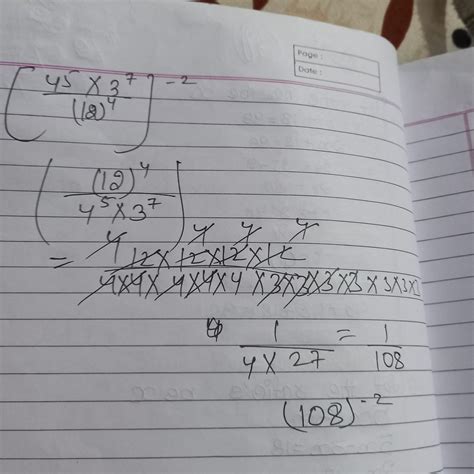 Page :
Date :
[ 4⁵ × 3⁷ / (12)⁴ ]⁻²
( (12)⁴ / 4⁵ × 3⁷ )
4 4 4 4
= 12 × 12 × 12 × 12 / 4 × 4 × 4 × 4 × 4 × 3 × 3 × 3 × 3 × 3 × 3 × 3
1 / 4 × 27 = 1 / 108
(108)⁻²